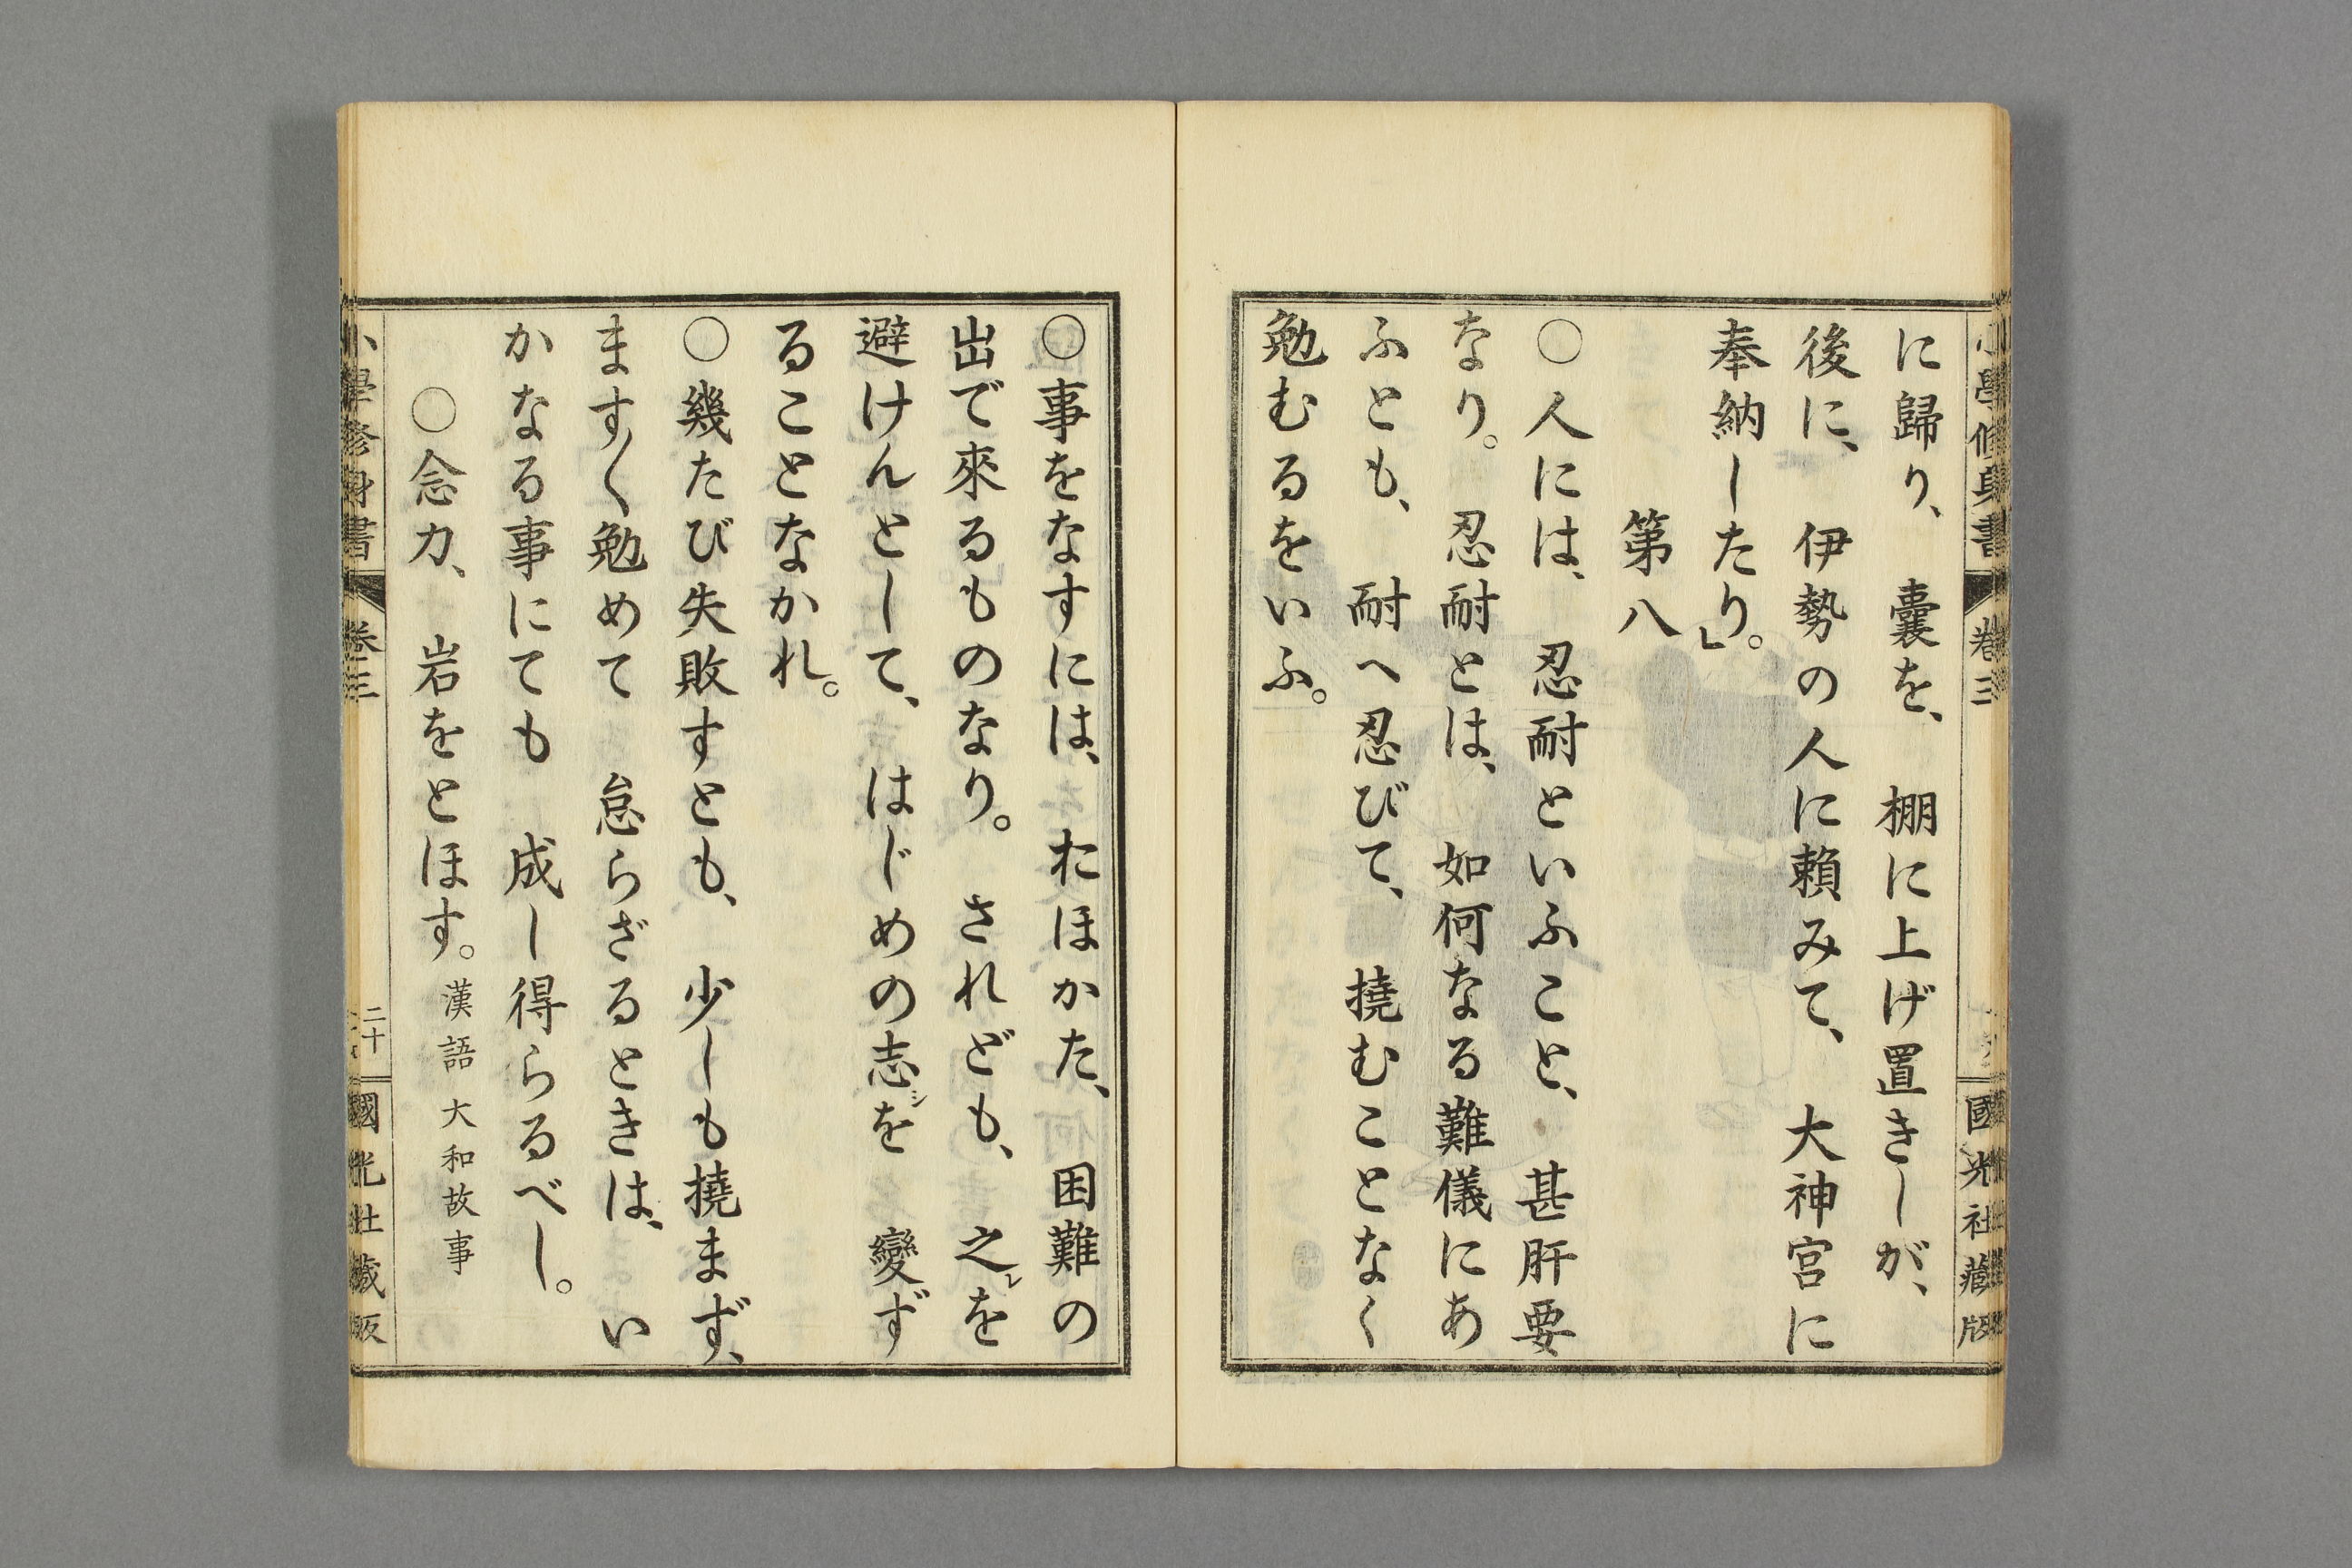 小學修身書 卷三 國光社藏版
に歸り、囊を、棚に上げ置きしが、
後に、伊勢の人に賴みて、大神宮に
奉納したり。」
第八
〇人には、忍耐といふこと、甚肝要
なり。忍耐とは、如何なる難儀にあ
ふとも、耐へ忍びて、撓むことなく
勉むるをいふ。
〇事をなすには、おほかた、困難の
出で來るものなり。されども、之レを
避けんとして、はじめの志シを變ず
ることなかれ。
〇幾たび失敗すとも、少しも撓まず、
ます〱勉めて怠らざるときは、い
かなる事にても成し得らるべし。
〇念力、岩をとほす。漢語大和故事
小學修身書 卷三 二十 國光社藏版